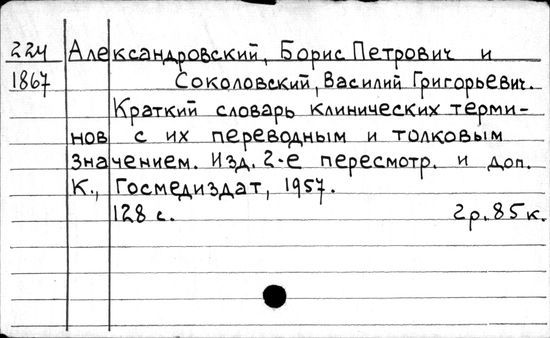 224 Александровский, Борис Петрович и
1867 Соколовский, Василий Григорьевич.
Краткий словарь клинических терми-
нов с их переводным и толковым
значением. Изд. 2-е пересмотр. и доп.
К., Госмедиздат, 1957.
128 с. 2р. 85к.